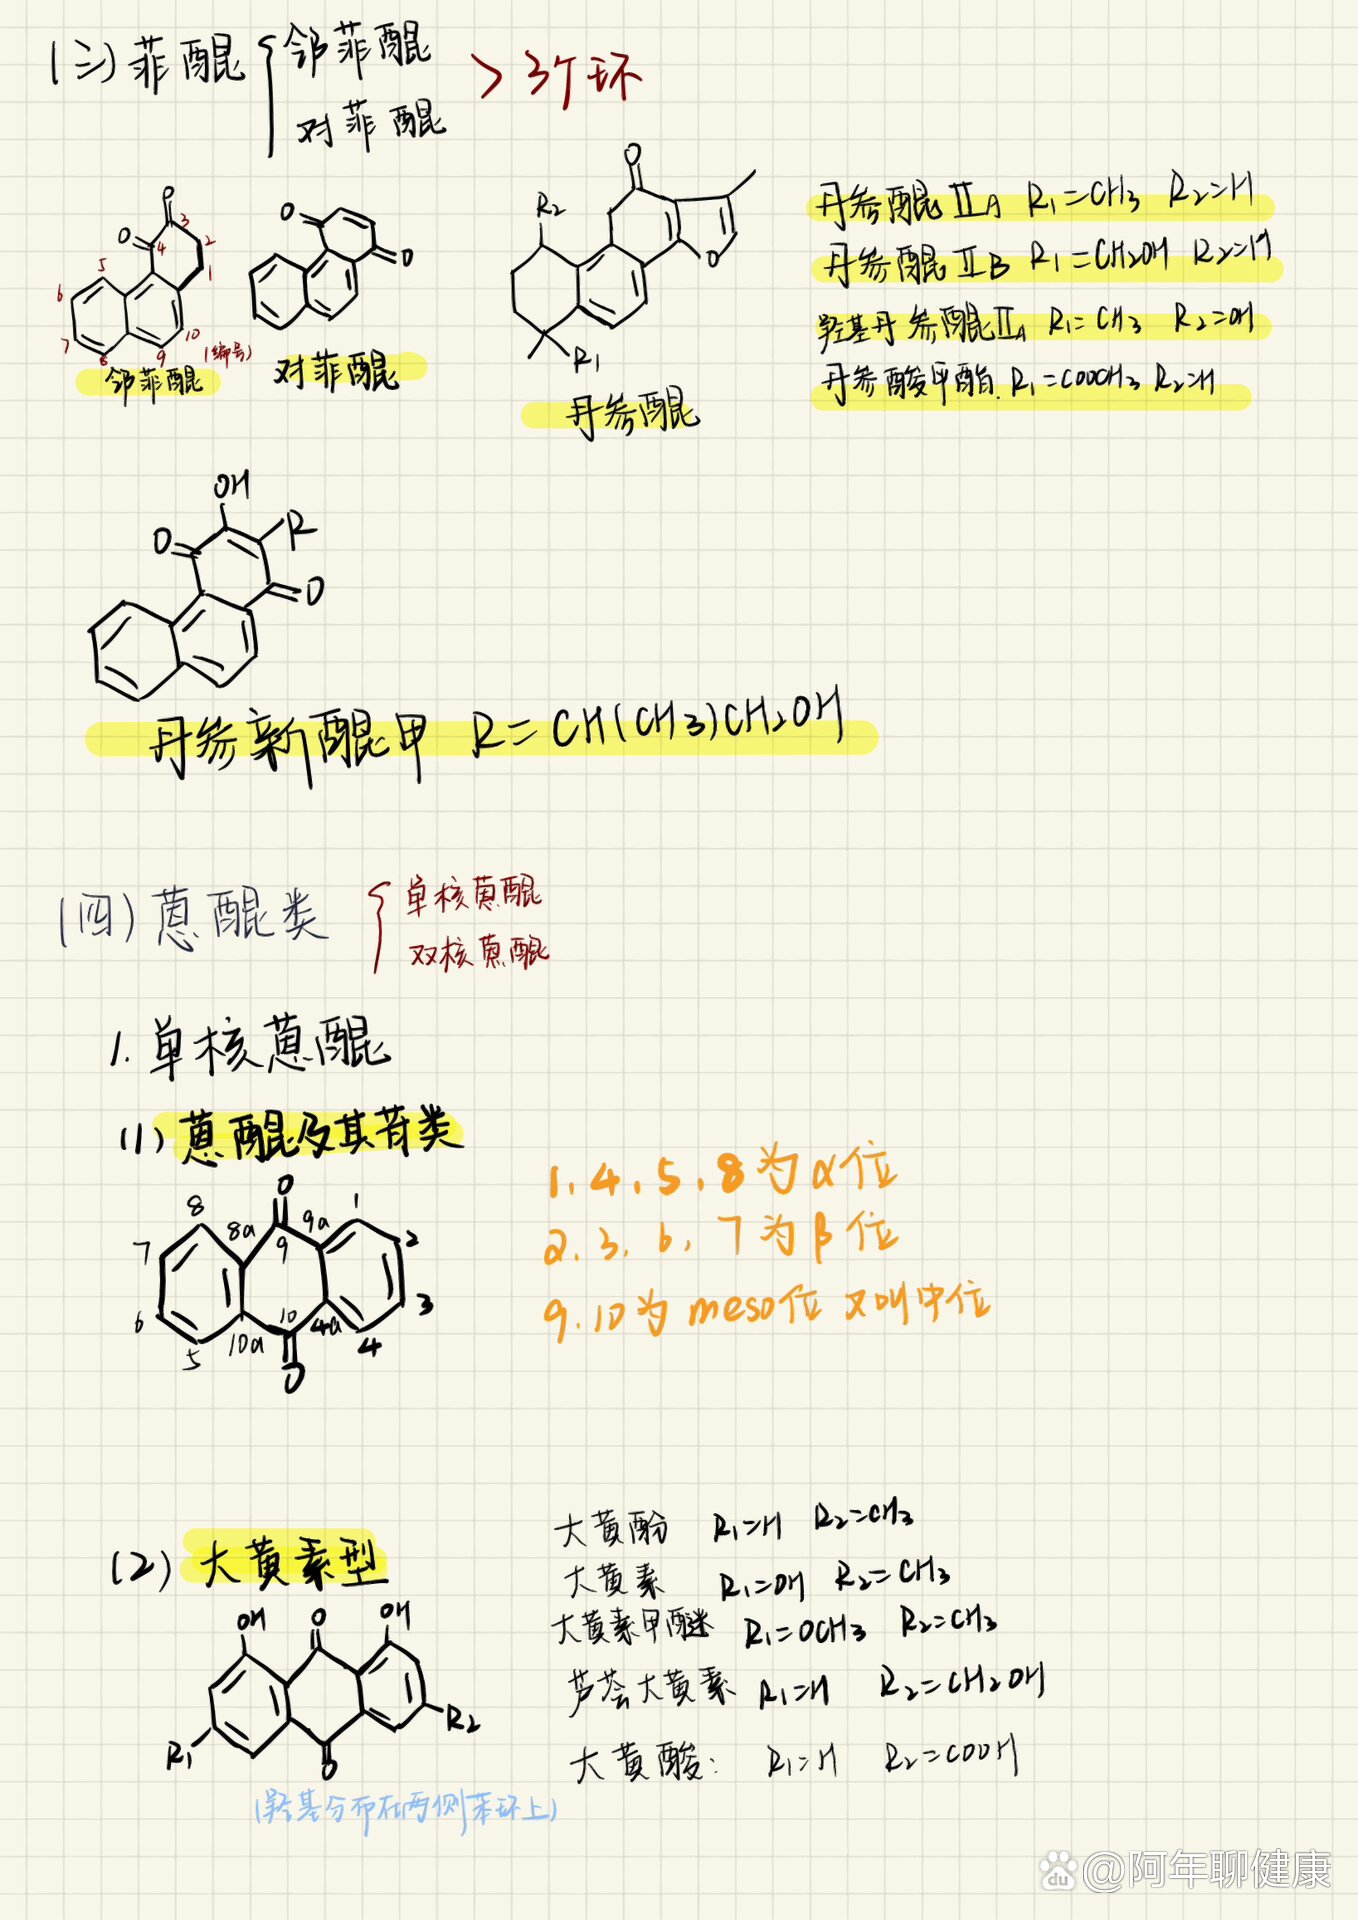 (三) 菲醌 { 邻菲醌
对菲醌
> 3个环
丹参醌ⅡA R1=CH3 R2=H
丹参醌ⅡB R1=CH2OH R2=H
羟基丹参醌ⅡA R1=CH3 R2=OH
丹参酸甲酯. R1=COOCH3 R2=H
O
O
3
4
2
1
5
6
7
8
9
10
(编号)
邻菲醌
O
O
对菲醌
O
R2
O
R1
丹参醌
OH
O
R
O
丹参新醌甲 R=CH(CH3)CH2OH
(四) 蒽醌类 { 单核蒽醌
双核蒽醌
1. 单核蒽醌
(1) 蒽醌及其苷类
O
8 8a 9 9a 1
7 2
6 3
5 10a 10 4a 4
O
1.4.5.8为α位
2.3.6.7为β位
9.10为meso位 又叫中位
(2) 大黄素型
OH O OH
R1 O R2
(羟基分布在两侧苯环上)
大黄酚 R1=H R2=CH3
大黄素 R1=OH R2=CH3
大黄素甲醚 R1=OCH3 R2=CH3
芦荟大黄素 R1=H R2=CH2OH
大黄酸: R1=H R2=COOH
du @阿年聊健康